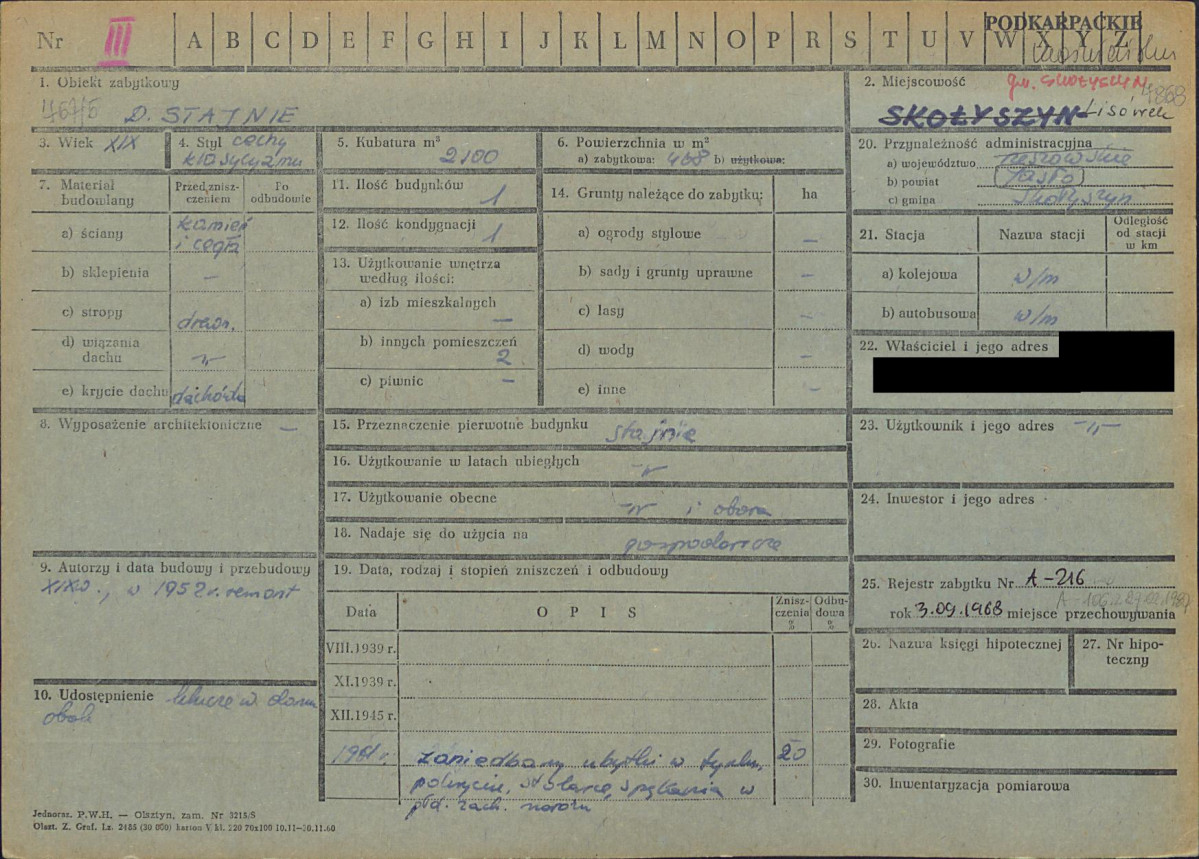 Nr III A B C D E F G H I J K L M N O P R S T U V W X Y Z
PODKARPACKIE
1. Obiekt zabytkowy
D. STAJNIE
2. Miejscowość gm. SKOŁYSZYN
SKOŁYSZYN Lisówek
3. Wiek XIX
4. Styl cechy klasycyzmu
5. Kubatura m³ 2100
6. Powierzchnia w m²
a) zabytkowa: 468 b) użytkowa:
20. Przynależność administracyjna
a) województwo rzeszowskie
b) powiat Jasło
c) gmina Skołyszyn
7. Materiał budowlany
Przed zniszczeniem
Po odbudowie
a) ściany kamień i cegła
b) sklepienia –
c) stropy drewn.
d) wiązania dachu -"-
e) krycie dachu dachówka
11. Ilość budynków 1
12. Ilość kondygnacji 1
13. Użytkowanie wnętrza według ilości:
a) izb mieszkalnych –
b) innych pomieszczeń 2
c) piwnic –
14. Grunty należące do zabytku: ha
a) ogrody stylowe –
b) sady i grunty uprawne –
c) lasy –
d) wody –
e) inne –
21. Stacja
Nazwa stacji
Odległość od stacji w km
a) kolejowa w/m
b) autobusowa w/m
22. Właściciel i jego adres
8. Wyposażenie architektoniczne –
15. Przeznaczenie pierwotne budynku stajnie
16. Użytkowanie w latach ubiegłych -"-
17. Użytkowanie obecne -"- i obora
18. Nadaje się do użycia na gospodarcze
23. Użytkownik i jego adres -"-
24. Inwestor i jego adres
9. Autorzy i data budowy i przebudowy
XIX w., w 1952 r. remont
19. Data, rodzaj i stopień zniszczeń i odbudowy
Data
OPIS
Zniszczenia %
Odbudowa %
VIII.1939 r.
XI.1939 r.
XII.1945 r.
1961 r. zaniedbany ubytki w tynku, 20
pokryciu, stolarce, spękania w
płd. zach. narożu
25. Rejestr zabytku Nr A-216
rok 3.09.1968 miejsce przechowywania
26. Nazwa księgi hipotecznej
27. Nr hipoteczny
10. Udostępnienie klucze w domu
obok
28. Akta
29. Fotografie
30. Inwentaryzacja pomiarowa
Jednoraz. P.W.H. — Olsztyn, zam. Nr 3213/S
Olszt. Z. Graf. Lz. 2485 (30 000) karton V kl. 220 70x100 10.11—30.11.60